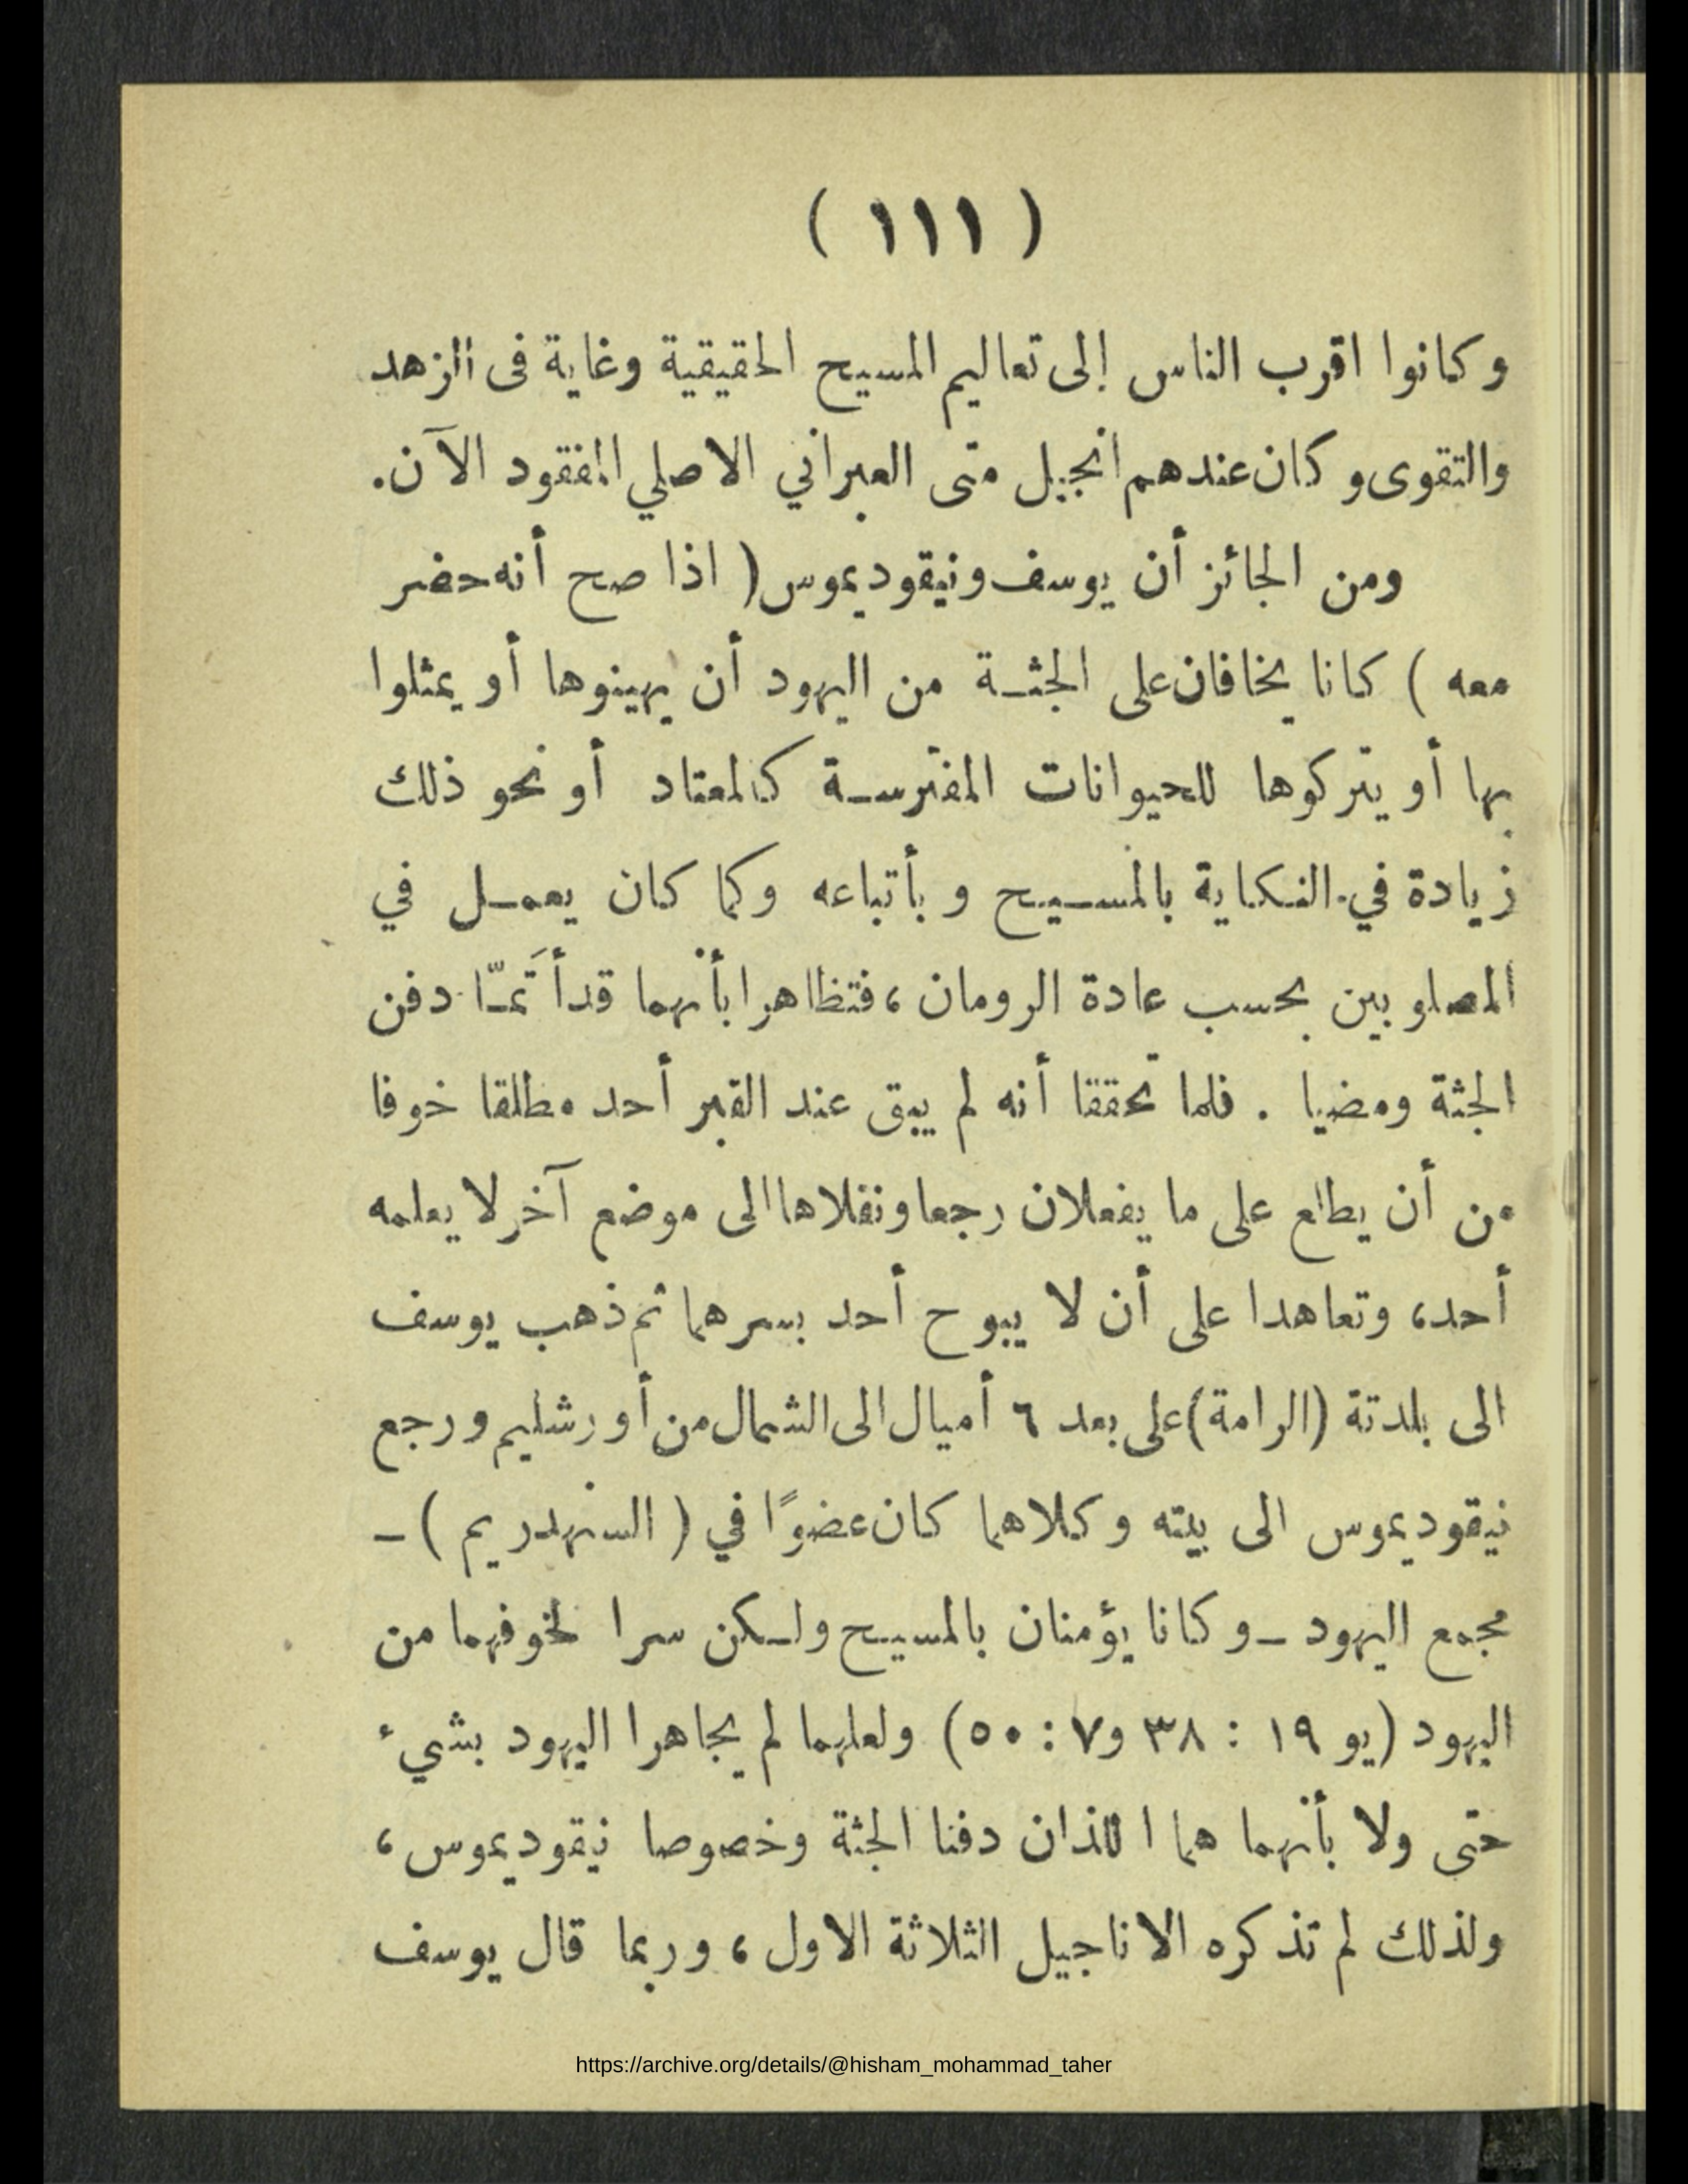 ( ١١١ )
وكانوا اقرب الناس إلى تعاليم المسيح الحقيقية وغاية فى الزهد
والتقوى وكان عندهم انجيل متى العبراني الاصلي المفقود الآن.
ومن الجائز أن يوسف ونيقوديموس ( اذا صح أنه حضر
معه ) كانا يخافان على الجثة من اليهود أن يهينوها أو يمثلوا
بها أو يتركوها للحيوانات المفترسة كالمعتاد أو نحو ذلك
زيادة في النكاية بالمسيح وبأتباعه وكما كان يعمل في
المصلوبين بحسب عادة الرومان ، فتظاهرا بأنهما قد أتَمّا دفن
الجثة ومضيا . فلما تحققا أنه لم يبق عند القبر أحد مطلقا خوفا
من أن يطلع على ما يفعلان رجعا ونقلاها الى موضع آخر لا يعلمه
أحد، وتعاهدا على أن لا يبوح أحد بسرهما ثم ذهب يوسف
الى بلدتة (الرامة) على بعد ٦ أميال الى الشمال من أورشليم ورجع
نيقوديموس الى بيته وكلاهما كان عضوًا في ( السنهدريم ) –
مجمع اليهود – وكانا يؤمنان بالمسيح ولكن سرا لخوفهما من
اليهود (يو ١٩ : ٣٨ و٧ : ٥٠) ولعلهما لم يجاهرا اليهود بشيء
حتى ولا بأنهما هما اللذان دفنا الجثة وخصوصا نيقوديموس ،
ولذلك لم تذكره الاناجيل الثلاثة الاول ، وربما قال يوسف
https://archive.org/details/@hisham_mohammad_taher